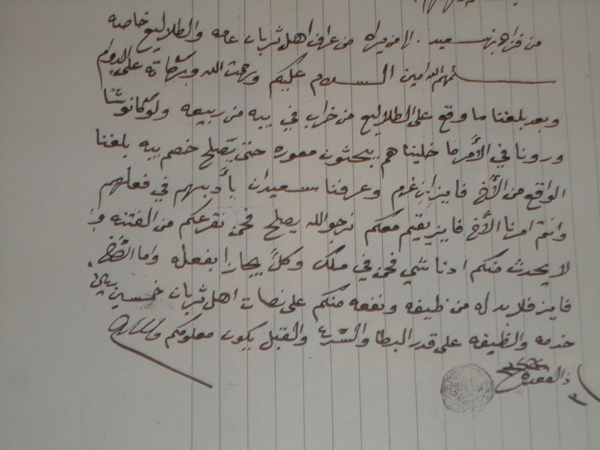 من فراج بن سعيد. الا من يراه من عراف اهل ثربان عامه والطلاليع خاصه
سلمهم الله امين السلام عليكم ورحمت الله وبركاته على الدوام
وبعد بلغنا ما وقع على الطلاليع من خراب في بيه من ربيعه ولو كانو
ورونا في الأمر ما خليناهم يبحثون معوره حتى يصلح خصم بيه بلغنا
الواقع من الأخ فايز ابن غرم وعرفنا سعيدان يأدبهم في فعلهم
وانتم امرنا الأخ فايز يقيم معكم نرجو الله يصلح فحن نقرعكم من الفتنه و
لا يحدث منكم ادنا شي فحن في ملك وكلاً يجازا بفعله واما الأخ
فايز فلا بد له من ظيفه ونفعه منكم على نصات اهل ثربان خمسين ريال
خدمه والظيفه على قدر البطا والسرع والقبل يكون معلومكم والسلام
ذالقعده
٣